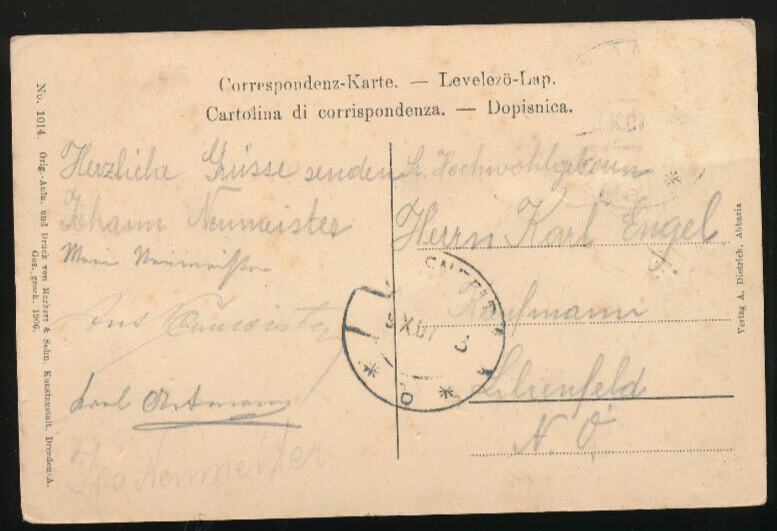 Correspondenz-Karte. — Levelezö-Lap.
Cartolina di corrispondenza. — Dopisnica.
No. 1014. Orig.-Aufn. und Druck von Markert & Sohn, Kunstanstalt, Dresden-A.
Ges. gesch. 1906.
Herzliche Grüsse senden
Johann Neumeister
Neumeister
Neumeister
Karl
Neumeister
Sr. Hochwohlgeboren
Herrn Karl Engel
Kaufmann
Lilienfeld
N. Ö.
XI 07
Verlag A. Dietrich, Abbazia